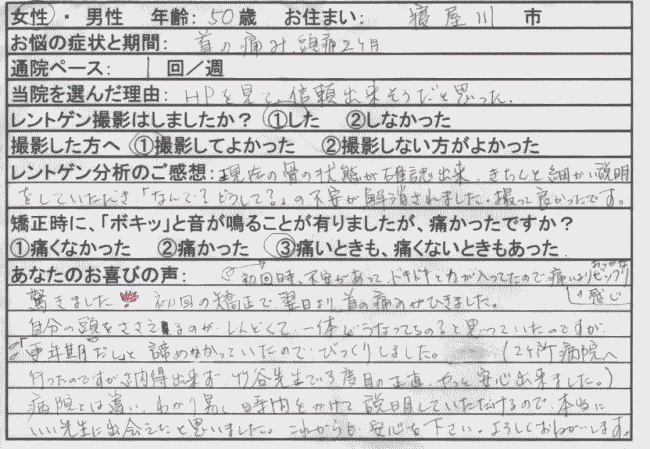 女性 ・ 男性 年齢：50歳 お住まい： 寝屋川 市
お悩の症状と期間： 首の痛み 頭痛 2ヶ月
通院ペース： 1 回／週
当院を選んだ理由： HPを見て、信頼出来そうだと思った。
レントゲン撮影はしましたか？ ①した ②しなかった
撮影した方へ ①撮影してよかった ②撮影しない方がよかった
レントゲン分析のご感想： 現在の骨の状態が確認出来、きちんと細かい説明
をしていただき「なんで？どうして？」の不安が解消されました。撮って良かったです。
矯正時に、「ボキッ」と音が鳴ることが有りましたが、痛かったですか？
①痛くなかった ②痛かった ③痛いときも、痛くないときもあった
あなたのお喜びの声： 初回時、不安があって、ドキドキと力が入ってたので痛いよりビックリ
驚きました 初回の矯正で翌日より、首の痛みがひきました。
自分の頭をささえるのが、しんどくて、一体どうなってるの？と思っていたのですが
「更年期だし」と諦めかかっていたので、びっくりしました。 （2ヶ所病院へ
行ったのですが納得出来ず、竹谷先生で3度目の正直、やっと安心出来ました。）
病院とは違い、わかり易く時間をかけて説明していただけるので、本当に
いい先生に出会えたと思いました。これからも安心を下さい。よろしくおねがいします。